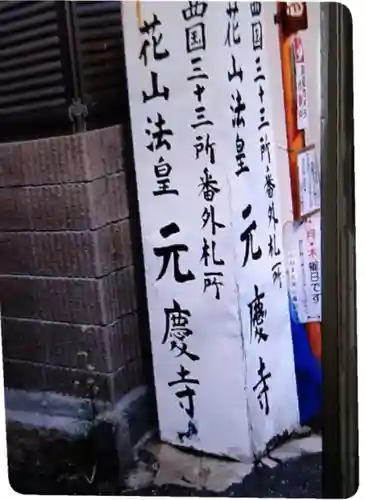 西国三十三所番外札所
花山法皇 元慶寺
西国三十三所番外札所
花山法皇 元慶寺
月・木
曜日です